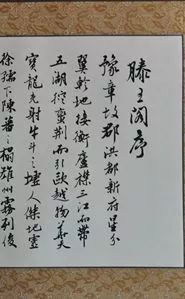 滕王閣序
豫章故郡洪都新府星分
翼軫地接衡廬襟三江而帶
五湖控蠻荊而引甌越物華天
寶龍光射牛斗之墟人傑地靈
徐孺下陳蕃之榻雄州霧列俊